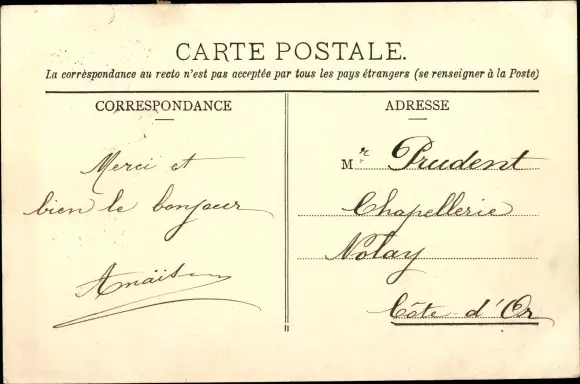 CARTE POSTALE.
La corrèspondance au recto n'est pas acceptée par tous les pays étrangers (se renseigner à la Poste)
CORRESPONDANCE
Merci et
bien le bonjour
Anaïs
ADRESSE
Mr Prudent
Chapellerie
Nolay
Côte d'Or